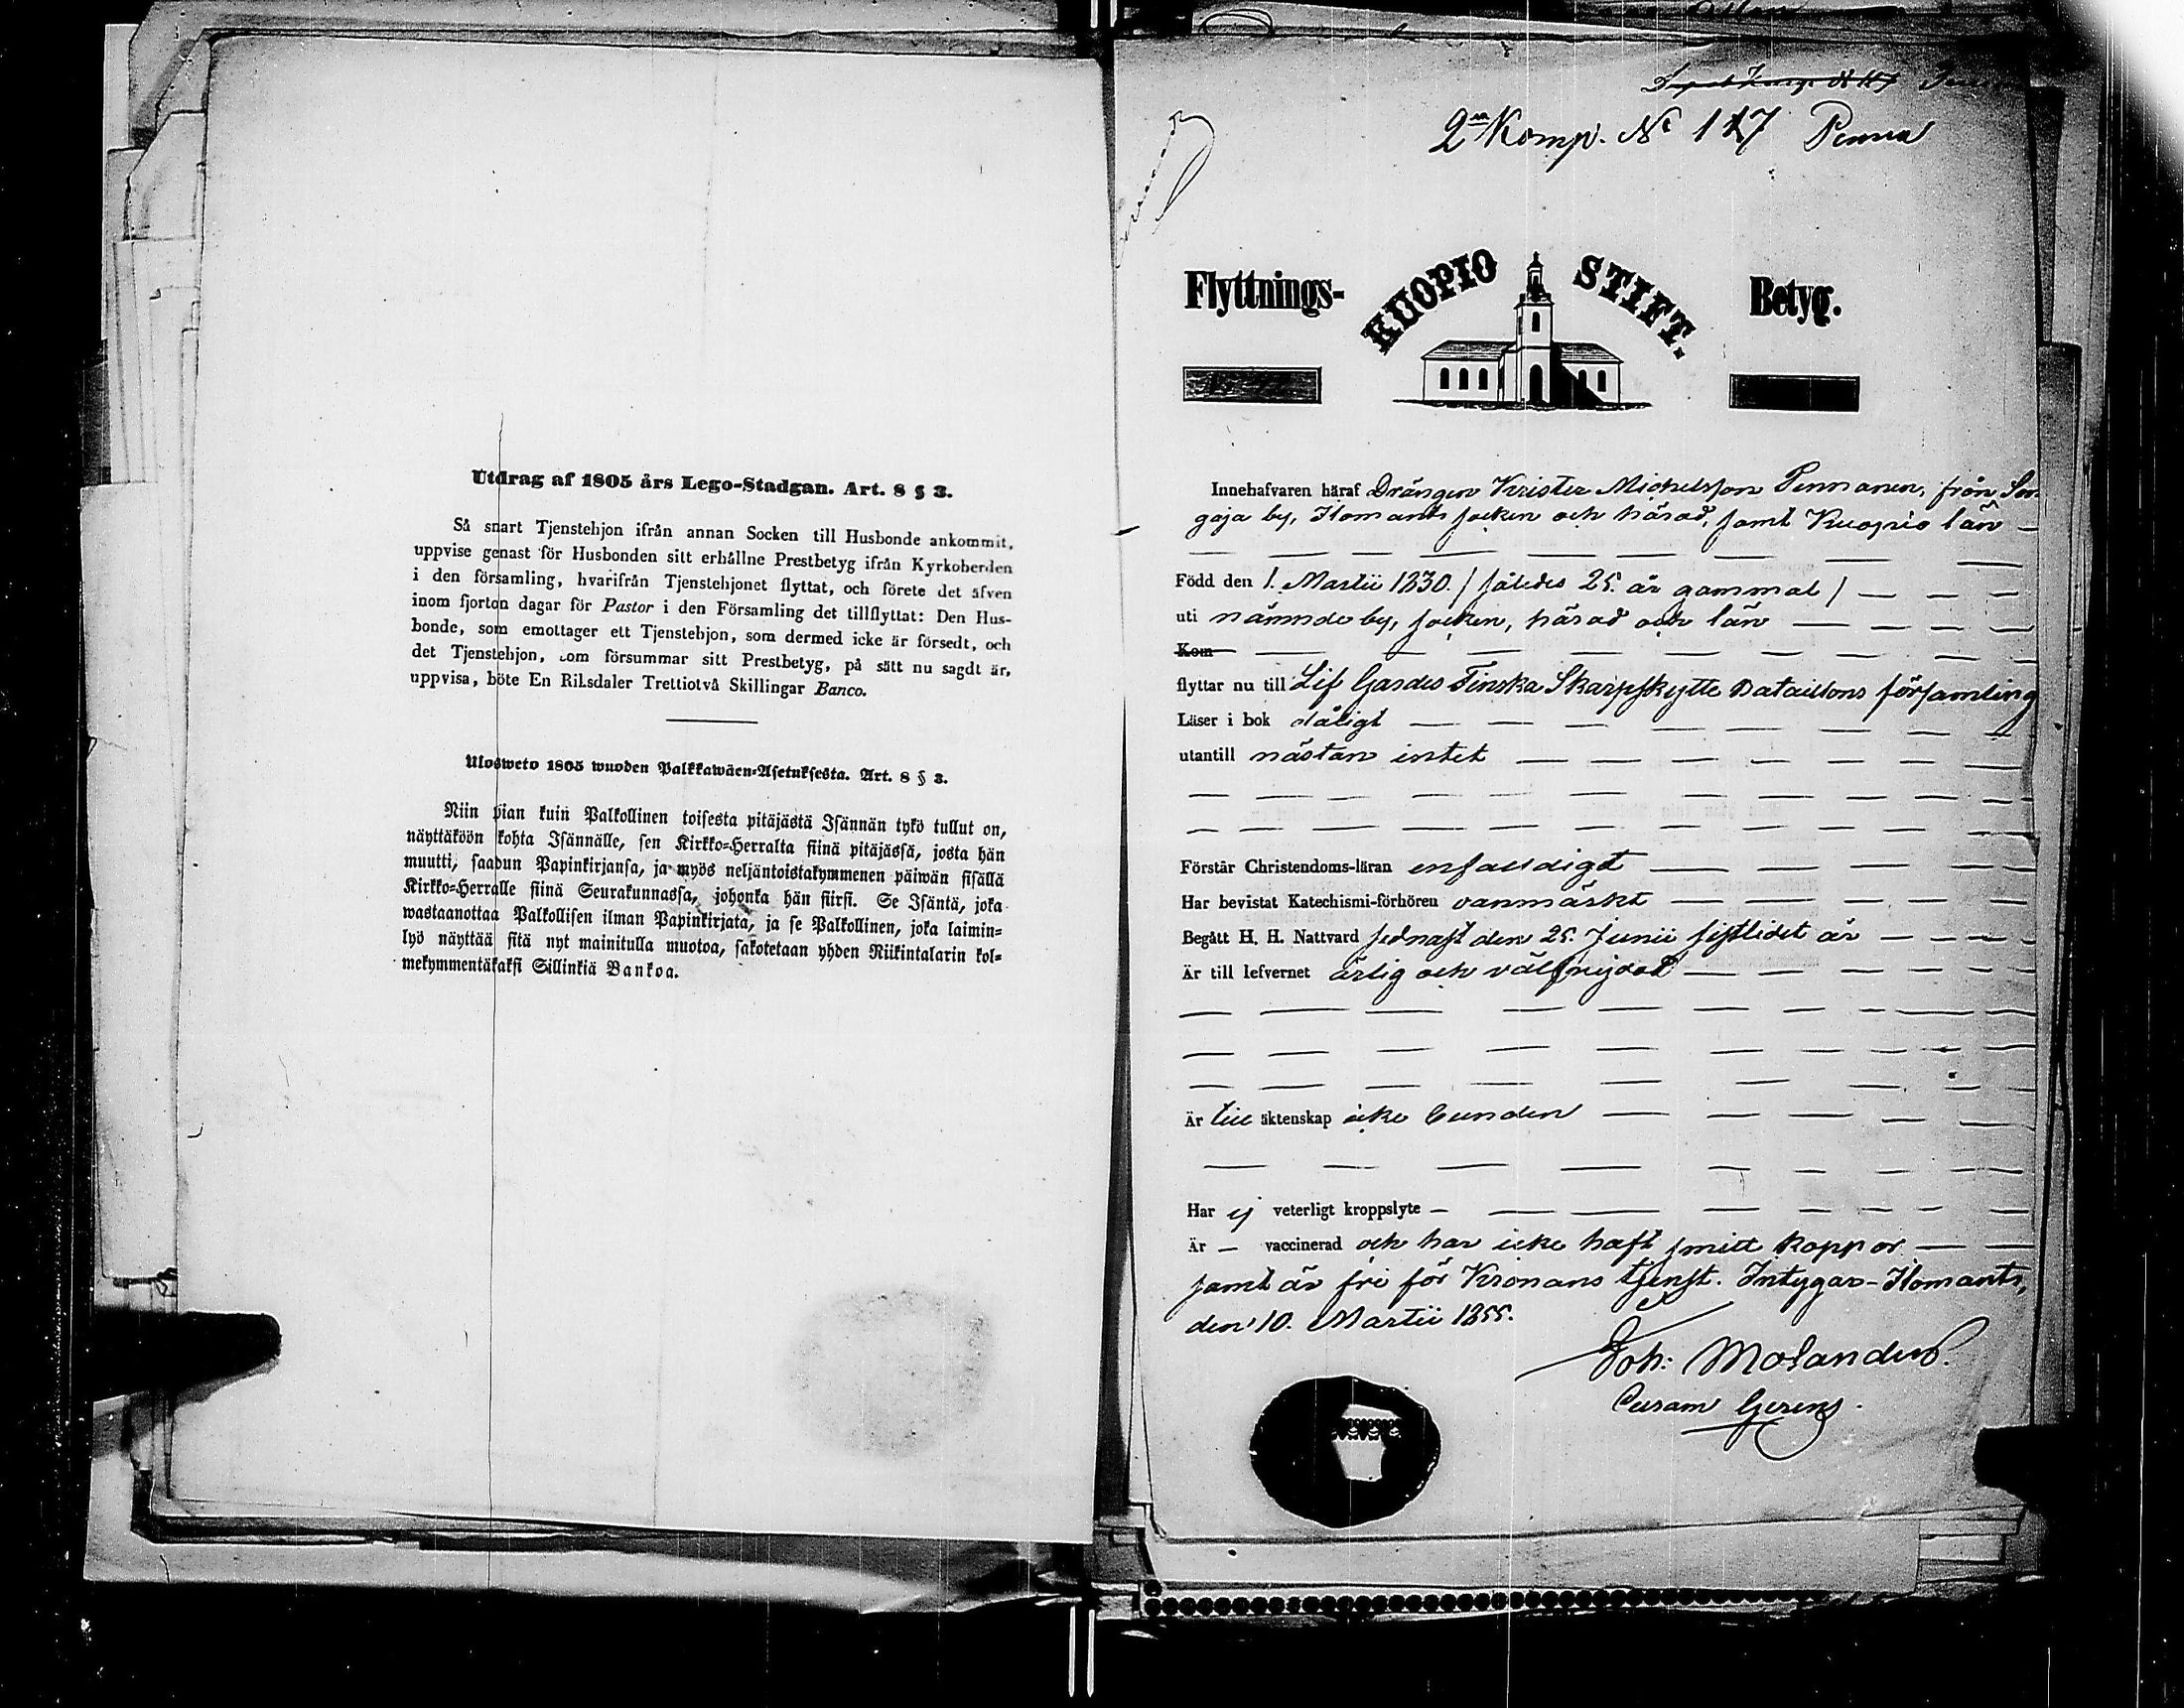 Utdrag af 1805 års Lego-Stadgan. Art. 8 § 3.
Så snart Tjenstehjon ifrån annan Socken till Husbonde ankommit,
uppvise genast för Husbonden sitt erhållne Prestbetyg ifrån Kyrkoherden
i den församling, hvarifrån Tjenstehjonet flyttat, och förete det äfven
inom fjorton dagar för Pastor i den Församling det tillflyttat: Den Hus-
bonde, som emottager ett Tjenstehjon, som dermed icke är försedt, och
det Tjenstehjon, som försummar sitt Prestbetyg, på sätt nu sagdt är,
uppvisa, böte En Riksdaler Trettiotvå Skillingar Banco.
Ulosweto 1805 wuoden Palkkawäen-Asetuksesta. Art. 8 § 3.
Niin pian kuin Palkollinen toisesta pitäjästä Isännän tykö tullut on,
näyttäköön kohta Isännälle, sen Kirkko-Herralta siinä pitäjässä, josta hän
muutti, saadun Papinkirjansa, ja myös neljäntoistakymmenen päiwän sisällä
Kirkko-Herralle siinä Seurakunnassa, johonka hän siirsi. Se Isäntä, joka
wastaanottaa Palkollisen ilman Papinkirjata, ja se Palkollinen, joka laimin-
lyö näyttää sitä nyt mainitulla muotoa, sakotetaan yhden Riikintalarin kol-
mekymmentäkaksi Sillinkiä Bankoa.
2n Komp. No 117 Penna
Flyttnings- KUOPIO STIFT. Betyg.
Innehafvaren häraf Drängen Krister Michelsson Pennanen, från Son
gaja by, Ilomants socken och härad, samt Kuopio län
Född den 1. Martii 1830. / således 25. år gammal /
uti nämnde by, socken, härad och län
Kom
flyttar nu till Lif Gardes Finska Skarpskytte Bataillons församling
Läser i bok dåligt
utantill nästan intet
Förstår Christendoms-läran enfaldigt
Har bevistat Katechismi-förhören oanmärkt
Begått H. H. Nattvard sednast den 25. Junii sistlidet år
Är till lefvernet ärlig och välfrejdad
Är till äktenskap icke bunden
Har ej veterligt kroppslyte
Är – vaccinerad och har icke haft smitt koppor
samt är fri för Kronans tjenst. Intygar – Ilomants,
den 10. Martii 1855.
Joh: Molander.
Curam Gerens.